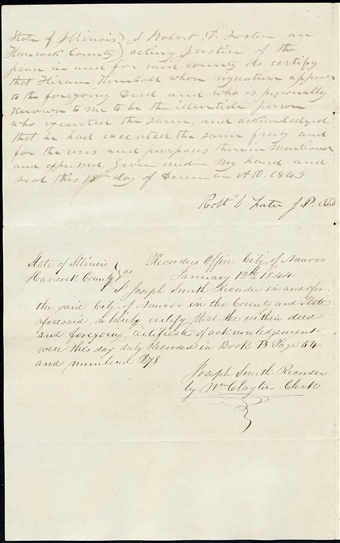 State of Illinois ) I Robert D. Foster an
Hancock County ) acting Justice of the
peace in and for said county do certify
that Hiram Kimball whose signature appears
to the foregoing Deed and who is personally
known to me to be the identicle person
who executed the same, and acknowledged
that he had executed the same freely and
for the uses and purposes therein mentioned
and expressed, given under my hand and
seal this day of December A.D. 1843
Robt D. Foster J.P.
State of Illinois ) Recorders Office City of Nauvoo
Hancock County ) ss January 12th 1844
I Joseph Smith Recorder in and for
the said City of Nauvoo in the County and State
aforesaid, do hereby certify that the within deed
and foregoing certificate of acknowledgement
were this day duly Recorded in Book B Page 64
and numbered
Joseph Smith Recorder
by Wm Clayton Clerk